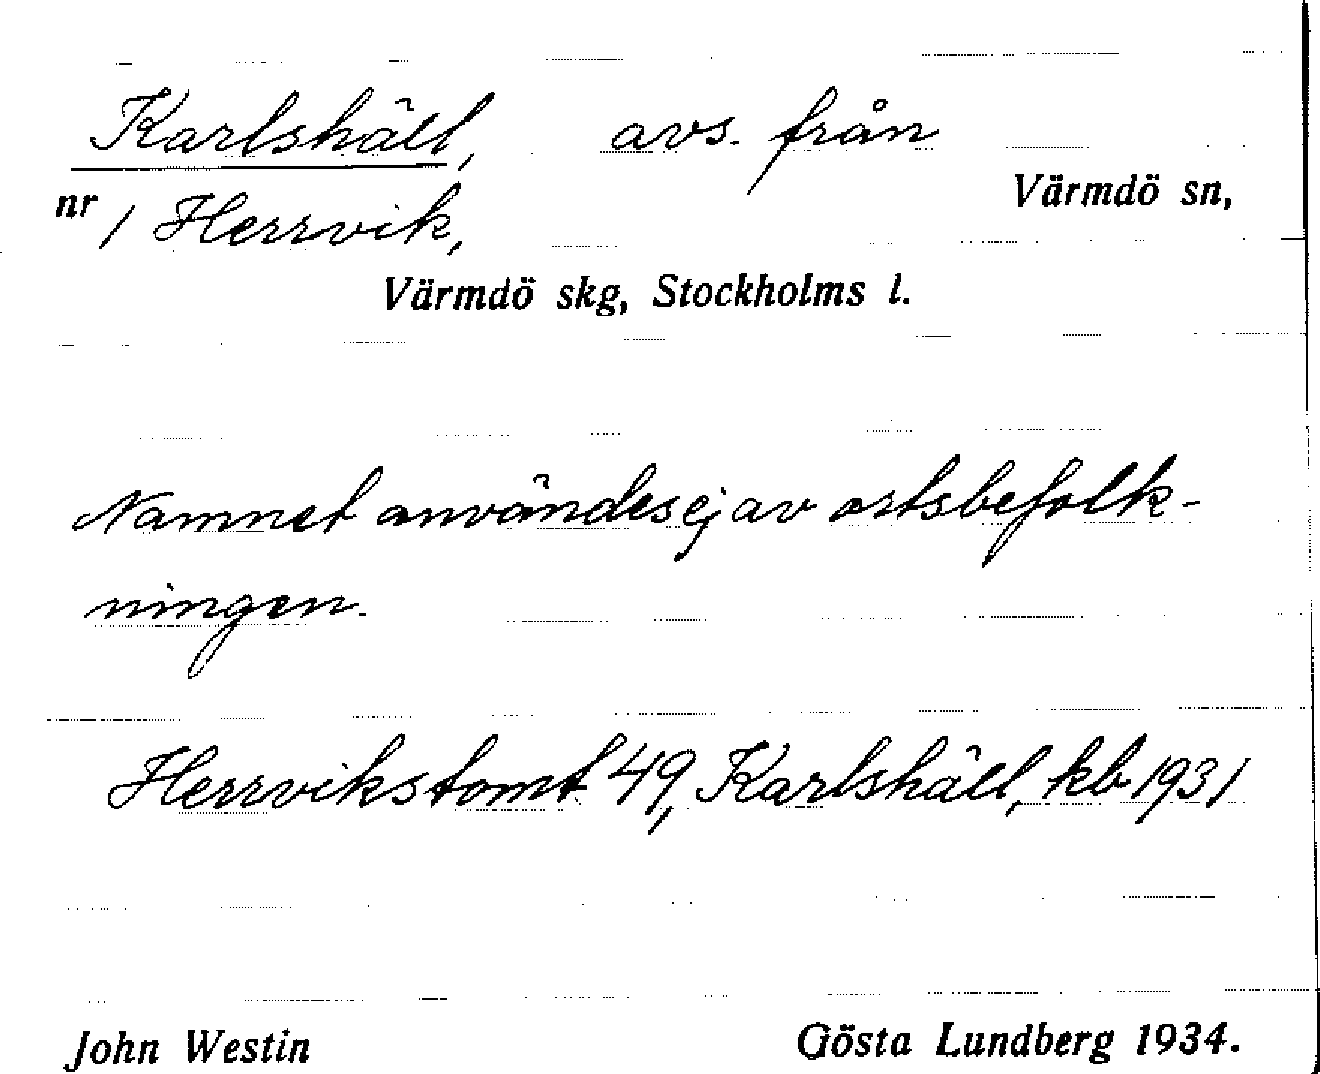 Karlshäll, avs. från
Värmdö sn,
nr 1 Herrvik,
Värmdö skg, Stockholms l.
Namnet användes ej av ortsbefolk-
ningen.
Herrvikstomt 49, Karlshäll, kb 1931
John Westin Gösta Lundberg 1934.